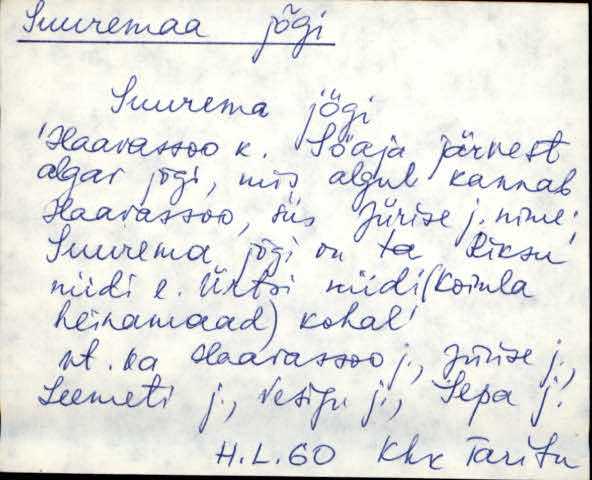 Suuremaa jõgi
Suurema jögi
'Haavassoo k. Söaja järvest
algav jögi, mis algul kannab
Haavassoo, siis Jürise j. nime.
Suurema jögi on ta Riksu
niidi e. Ürtsi niidi (Koimla
heinamaad) kohal'
vt. ka Haavassoo j., Jürise j.,
Leemeti j., Vesigu j., Sepa j.
H.L.60 Khk Taritu